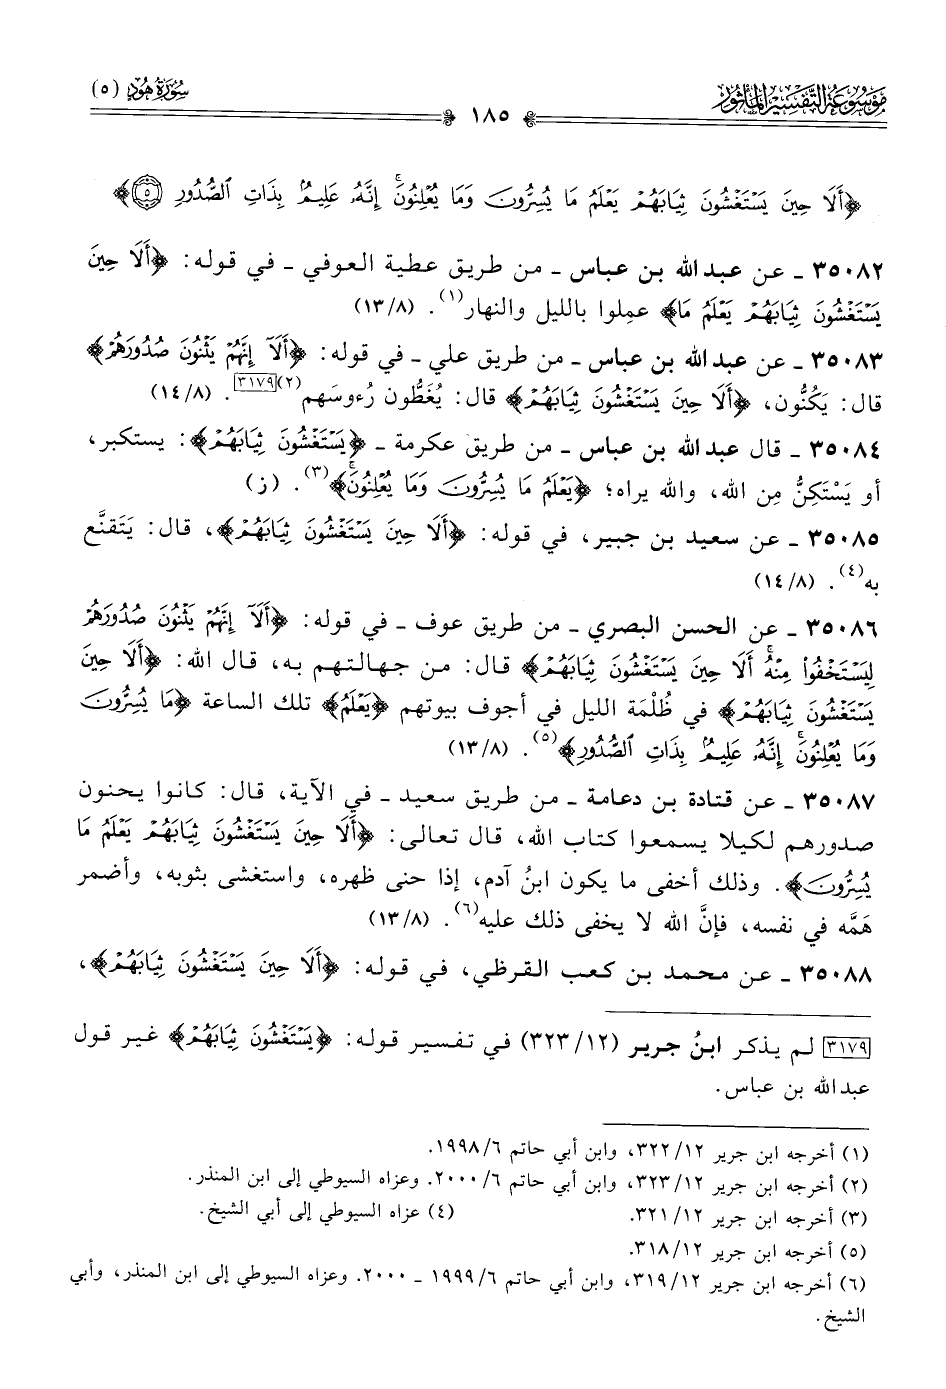 موسوعة التفسير المأثور
١٨٥
سورة هود (٥)
﴿أَلَا حِينَ يَسْتَغْشُونَ ثِيَابَهُمْ يَعْلَمُ مَا يُسِرُّونَ وَمَا يُعْلِنُونَۚ إِنَّهُۥ عَلِيمُۢ بِذَاتِ ٱلصُّدُورِ ٥﴾
٣٥٠٨٢ ـ عن عبد الله بن عباس ـ من طريق عطية العوفي ـ في قوله: ﴿أَلَا حِينَ
يَسْتَغْشُونَ ثِيَابَهُمْ يَعْلَمُ مَا﴾ عمِلوا بالليل والنهار(١). (١٣/٨)
٣٥٠٨٣ ـ عن عبد الله بن عباس ـ من طريق علي ـ في قوله: ﴿أَلَآ إِنَّهُمْ يَثْنُونَ صُدُورَهُمْ﴾
قال: يَكُنُّون، ﴿أَلَا حِينَ يَسْتَغْشُونَ ثِيَابَهُمْ﴾ قال: يُغَطُّون رُءوسَهم(٢)[٣١٧٩]. (١٤/٨)
٣٥٠٨٤ ـ قال عبد الله بن عباس ـ من طريق عكرمة ـ ﴿يَسْتَغْشُونَ ثِيَابَهُمْ﴾: يستكبر،
أو يَسْتَكِنُّ مِن الله، والله يراه؛ ﴿يَعْلَمُ مَا يُسِرُّونَ وَمَا يُعْلِنُونَۚ﴾(٣). (ز)
٣٥٠٨٥ ـ عن سعيد بن جبير، في قوله: ﴿أَلَا حِينَ يَسْتَغْشُونَ ثِيَابَهُمْ﴾، قال: يَتَقنَّع
به(٤). (١٤/٨)
٣٥٠٨٦ ـ عن الحسن البصري ـ من طريق عوف ـ في قوله: ﴿أَلَآ إِنَّهُمْ يَثْنُونَ صُدُورَهُمْ
لِيَسْتَخْفُوا۟ مِنْهُۚ أَلَا حِينَ يَسْتَغْشُونَ ثِيَابَهُمْ﴾ قال: من جهالتهم به، قال الله: ﴿أَلَا حِينَ
يَسْتَغْشُونَ ثِيَابَهُمْ﴾ في ظُلْمَة الليل في أجوف بيوتهم ﴿يَعْلَمُ﴾ تلك الساعة ﴿مَا يُسِرُّونَ
وَمَا يُعْلِنُونَۚ إِنَّهُۥ عَلِيمُۢ بِذَاتِ ٱلصُّدُورِ﴾(٥). (١٣/٨)
٣٥٠٨٧ ـ عن قتادة بن دعامة ـ من طريق سعيد ـ في الآية، قال: كانوا يحنون
صدورهم لكيلا يسمعوا كتاب الله، قال تعالى: ﴿أَلَا حِينَ يَسْتَغْشُونَ ثِيَابَهُمْ يَعْلَمُ مَا
يُسِرُّونَ﴾. وذلك أخفى ما يكون ابنُ آدم، إذا حنى ظهره، واستغشى بثوبه، وأضمر
هَمَّه في نفسه، فإنَّ الله لا يخفى ذلك عليه(٦). (١٣/٨)
٣٥٠٨٨ ـ عن محمد بن كعب القرظي، في قوله: ﴿أَلَا حِينَ يَسْتَغْشُونَ ثِيَابَهُمْ﴾،
[٣١٧٩] لم يذكر ابنُ جرير (٣٢٣/١٢) في تفسير قوله: ﴿يَسْتَغْشُونَ ثِيَابَهُمْ﴾ غير قول
عبد الله بن عباس.
(١) أخرجه ابن جرير ٣٢٢/١٢، وابن أبي حاتم ١٩٩٨/٦.
(٢) أخرجه ابن جرير ٣٢٣/١٢، وابن أبي حاتم ٢٠٠٠/٦. وعزاه السيوطي إلى ابن المنذر.
(٣) أخرجه ابن جرير ٣٢١/١٢. (٤) عزاه السيوطي إلى أبي الشيخ.
(٥) أخرجه ابن جرير ٣١٨/١٢.
(٦) أخرجه ابن جرير ٣١٩/١٢، وابن أبي حاتم ١٩٩٩/٦ ـ ٢٠٠٠. وعزاه السيوطي إلى ابن المنذر، وأبي
الشيخ.